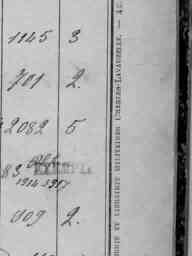 1145 3
701 2.
2082 5
83
1914-1917
909 2.
ET LIBRAIRIE MILITAIRES CHARLES-LAVAUZELLE. —